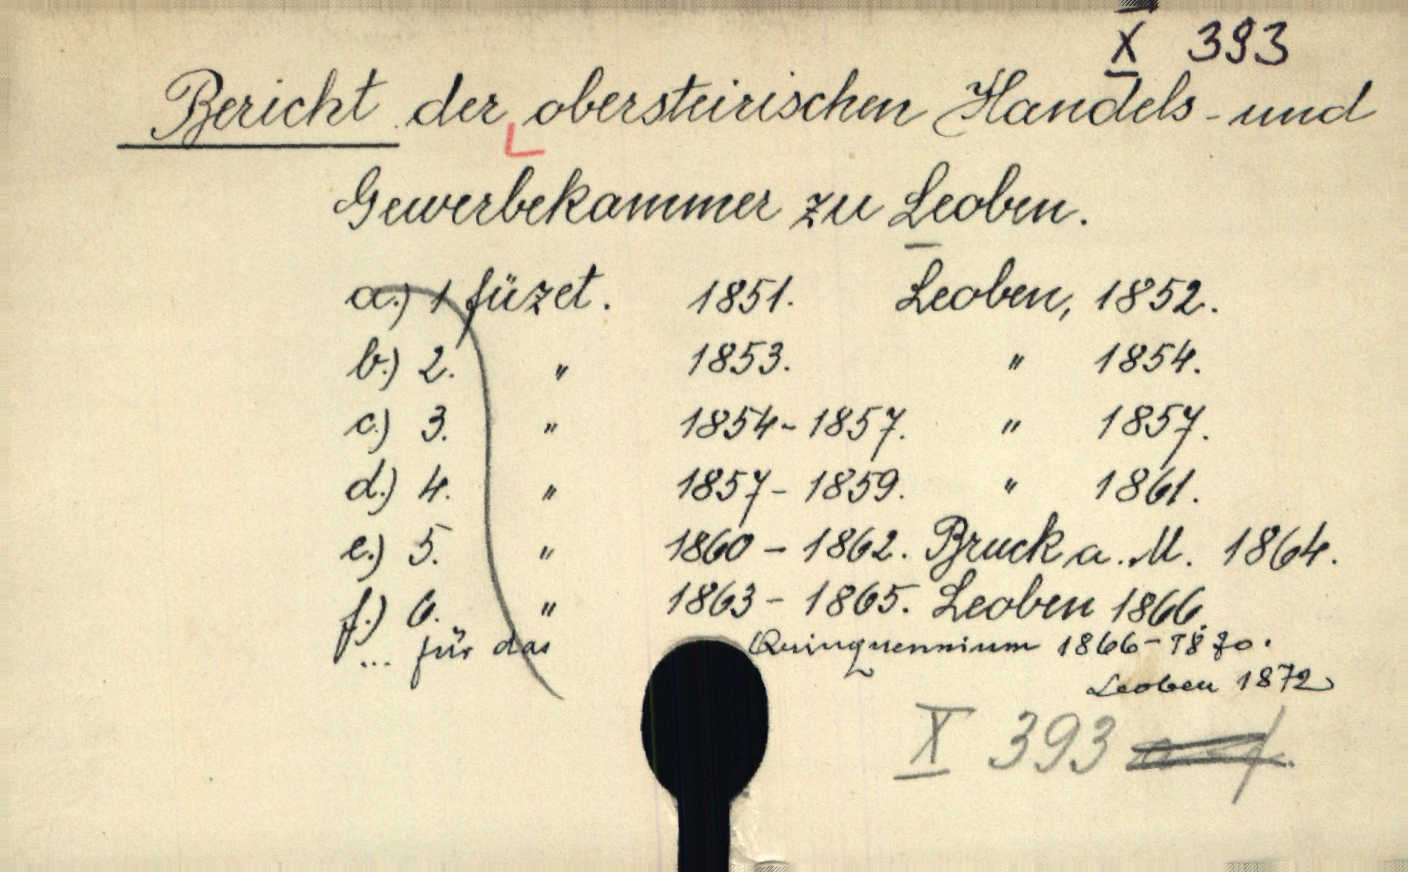 X 393
Bericht der obersteirischen Handels- und
Gewerbekammer zu Leoben.
a.) 1 füzet. 1851. Leoben, 1852.
b.) 2. " 1853. " 1854.
c.) 3. " 1854-1857. " 1857.
d.) 4. " 1857-1859. " 1861.
e.) 5. " 1860-1862. Bruck a. M. 1864.
f.) 6. " 1863-1865. Leoben 1866.
... für das Quinquennium 1866-1870.
Leoben 1872
X 393